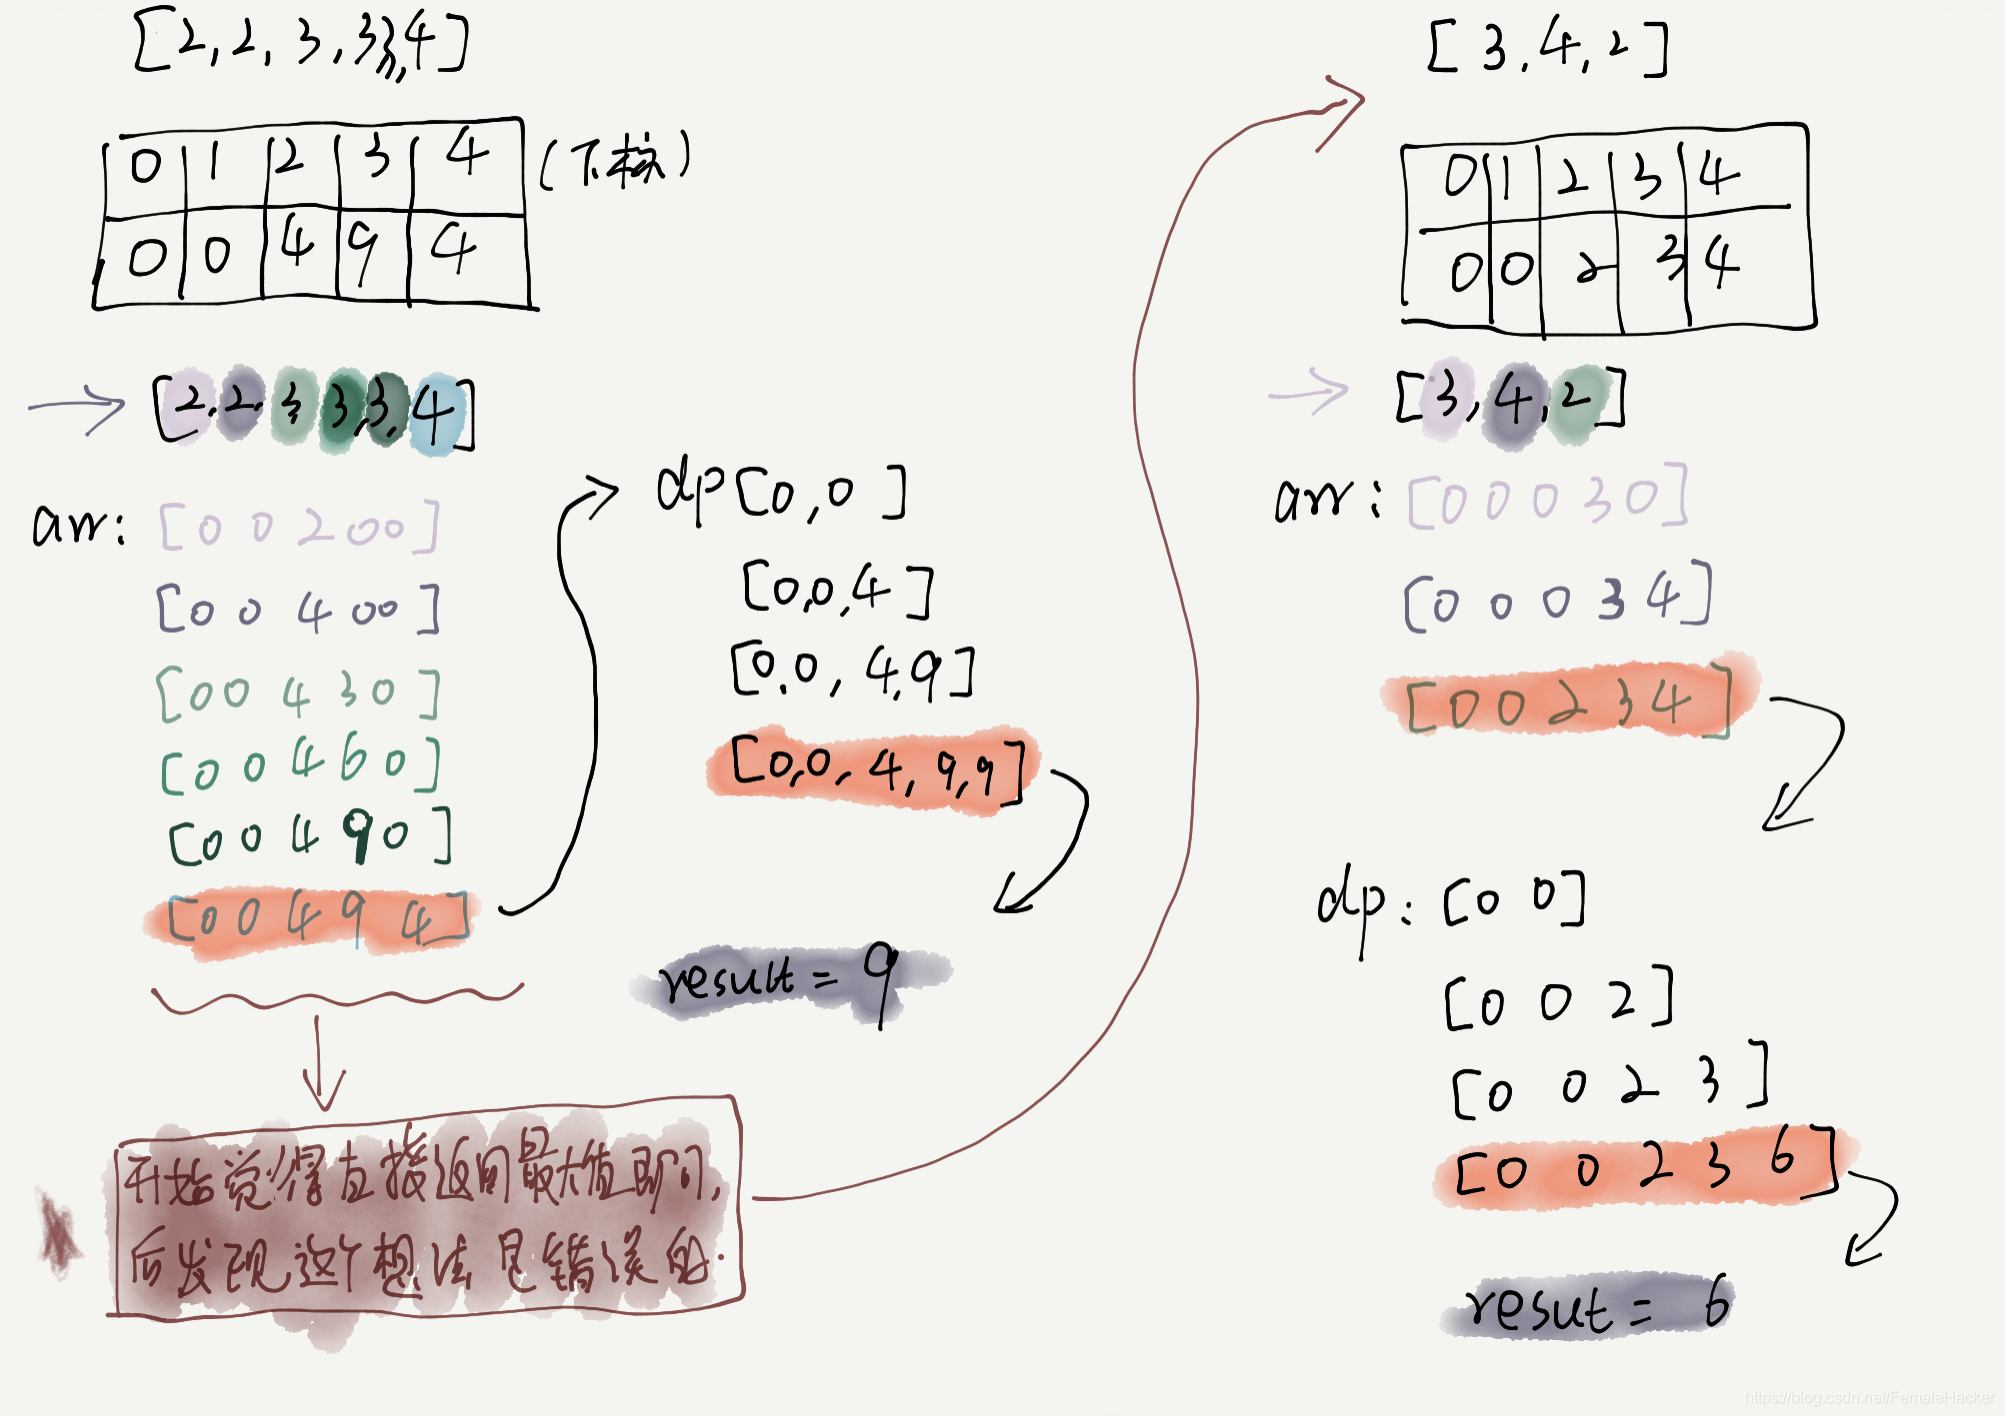 [2,2,3,3,3,4]
0 1 2 3 4 (下标)
0 0 4 9 4
[2,2,3,3,3,4]
arr: [0 0 2 0 0]
[0 0 4 0 0]
[0 0 4 3 0]
[0 0 4 6 0]
[0 0 4 9 0]
[0 0 4 9 4]
开始觉得直接返回最大值即可,
后发现这个想法是错误的.
dp[0,0]
[0,0,4]
[0,0,4,9]
[0,0,4,9,9]
result = 9
[3,4,2]
0 1 2 3 4
0 0 2 3 4
[3,4,2]
arr: [0 0 0 3 0]
[0 0 0 3 4]
[0 0 2 3 4]
dp: [0 0]
[0 0 2]
[0 0 2 3]
[0 0 2 3 6]
resut = 6
https://blog.csdn.net/FemaleHacker